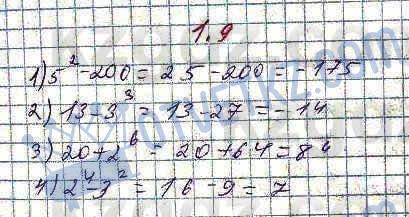 1.9
1) 5² - 200 = 25 - 200 = - 175
2) 13 - 3³ = 13 - 27 = - 14
3) 20 + 2⁶ = 20 + 64 = 84
4) 2⁴ - 3² = 16 - 9 = 7